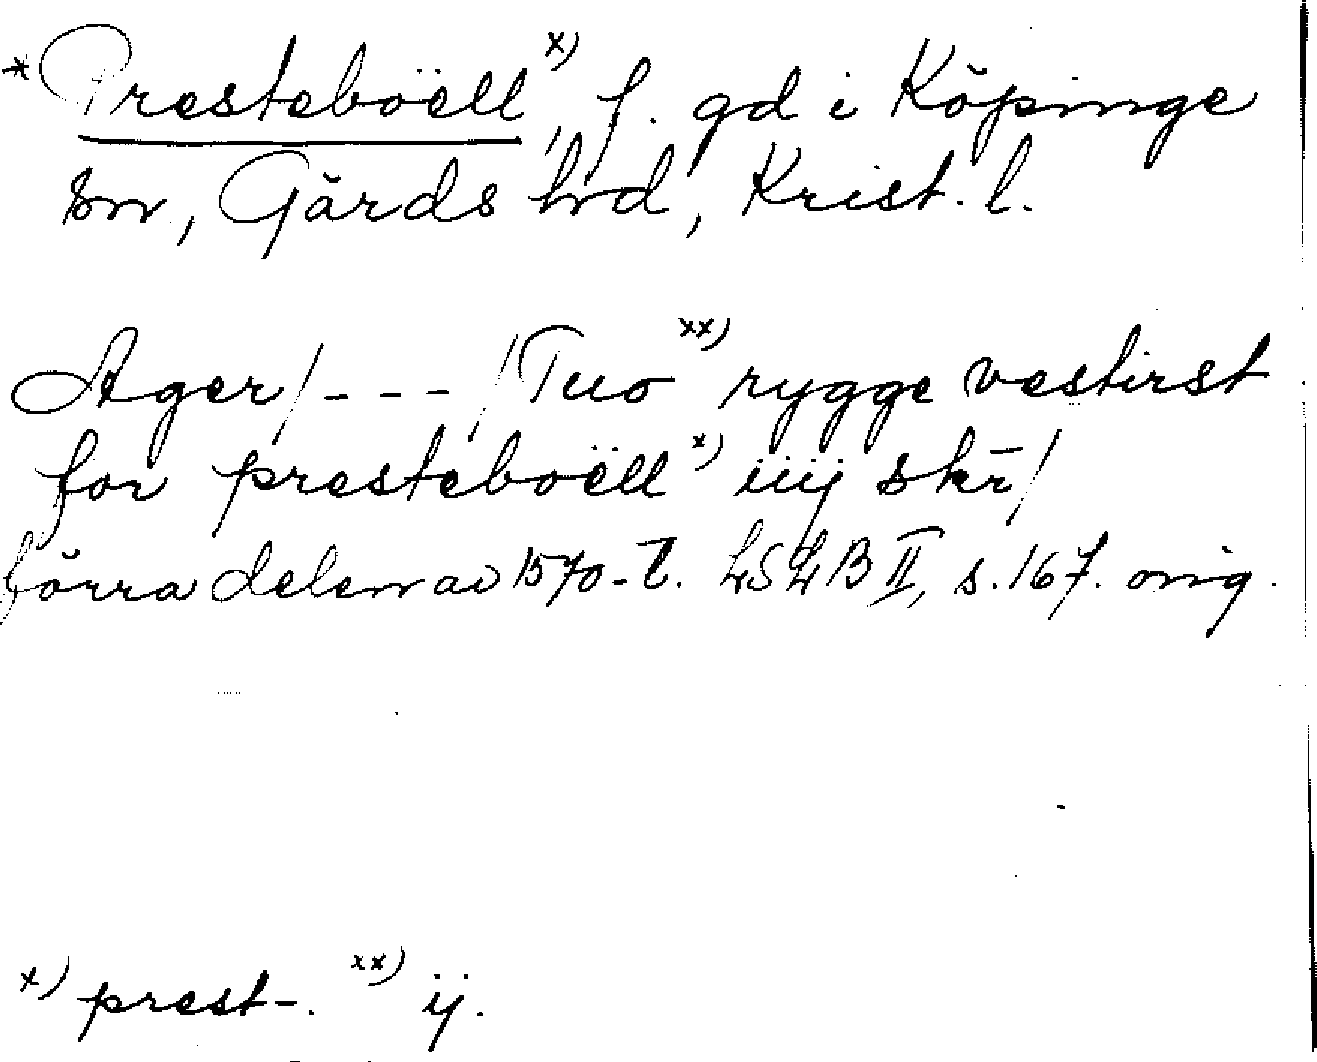 *Presteboëll x), f. gd i Köpinge
sn, Gärds hd, Krist. l.
Ager/---/Tuo xx) rygge vestirst
for presteboëll x) iiij skr̄/
förra delen av 1570-t. LSLB II, s. 167. orig.
x) prest-. xx) ij.